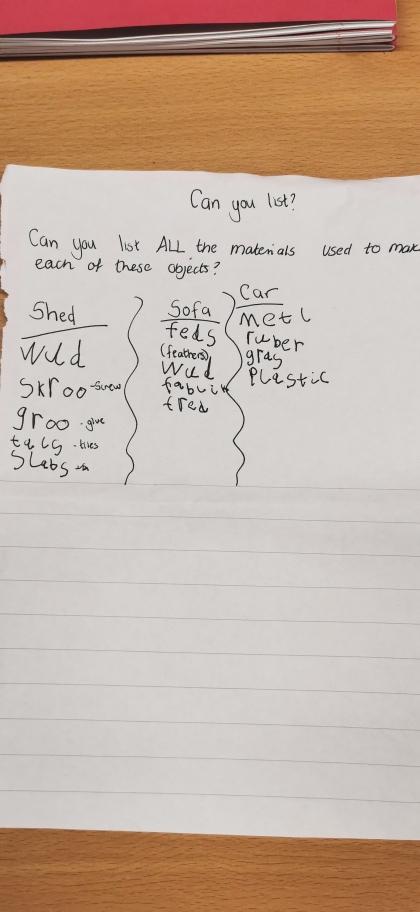 Can you list?
Can you list ALL the materials used to mak
each of these objects?
Shed
Wud
Skroo -Screw
groo - glue
tals - tiles
Slabs
Sofa
feds
(feathers)
Wud
fabrik
tred
Car
Metl
ruber
glas
Plastic